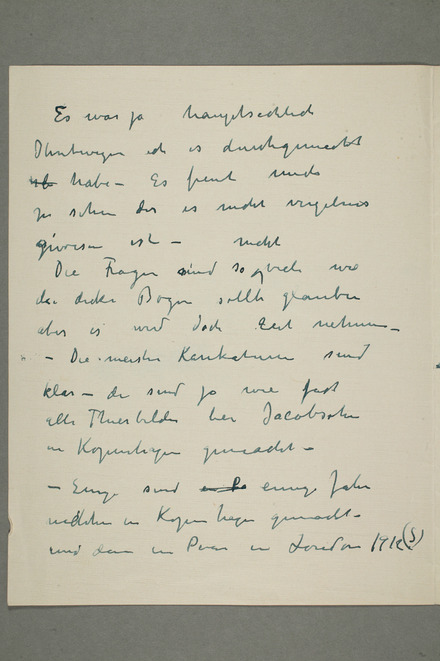 Es war ja hauptsächlich
Ihretwegen ich es durchgemacht
habe – Es freut mich
zu sehen das es nicht vergebens
gewesen ist – nicht
Die Fragen sind so viele wie
die dicke Bogen sollte glauben
aber es wird doch Zeit nehmen –
– Die meisten Karikaturen sind
klar – die sind ja wie fast
alle Thierbilder bei Jacobson
in Kopenhagen gemacht –
– Einige sind einige Jahr
in Kopenhagen gemacht –
und dann in Paris in London 191